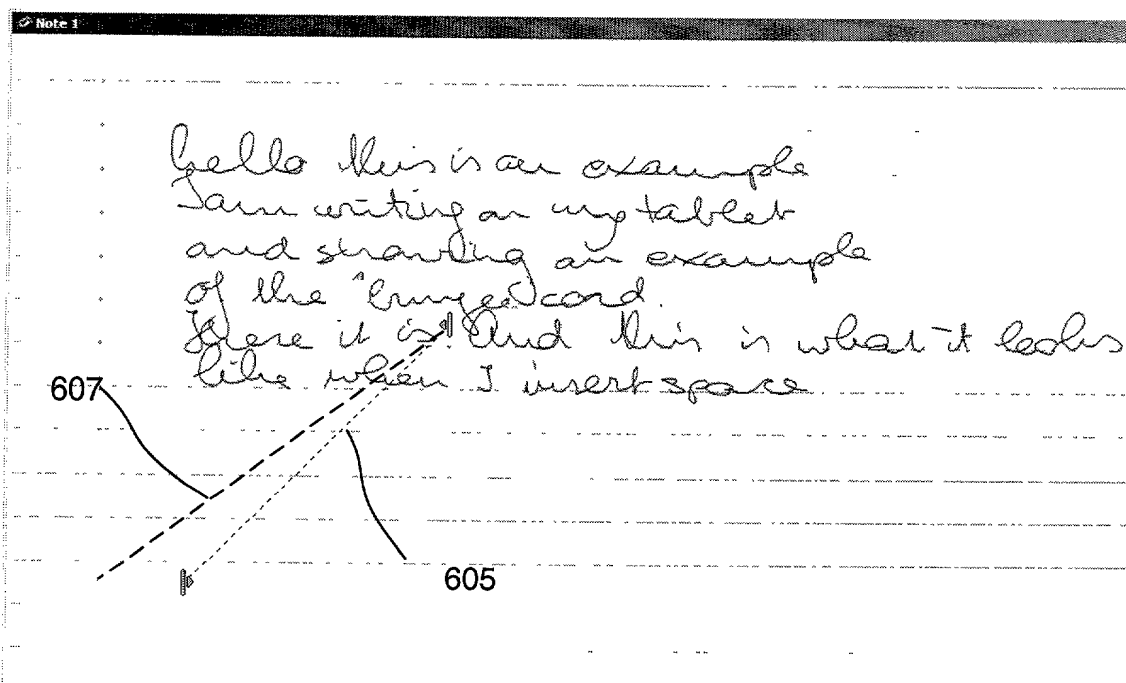 Note 1
hello this is an example
I am writing on my tablet
and showing an example
of the "bungee" cord.
Here it is! And this is what it looks
like when I insert space
607
605